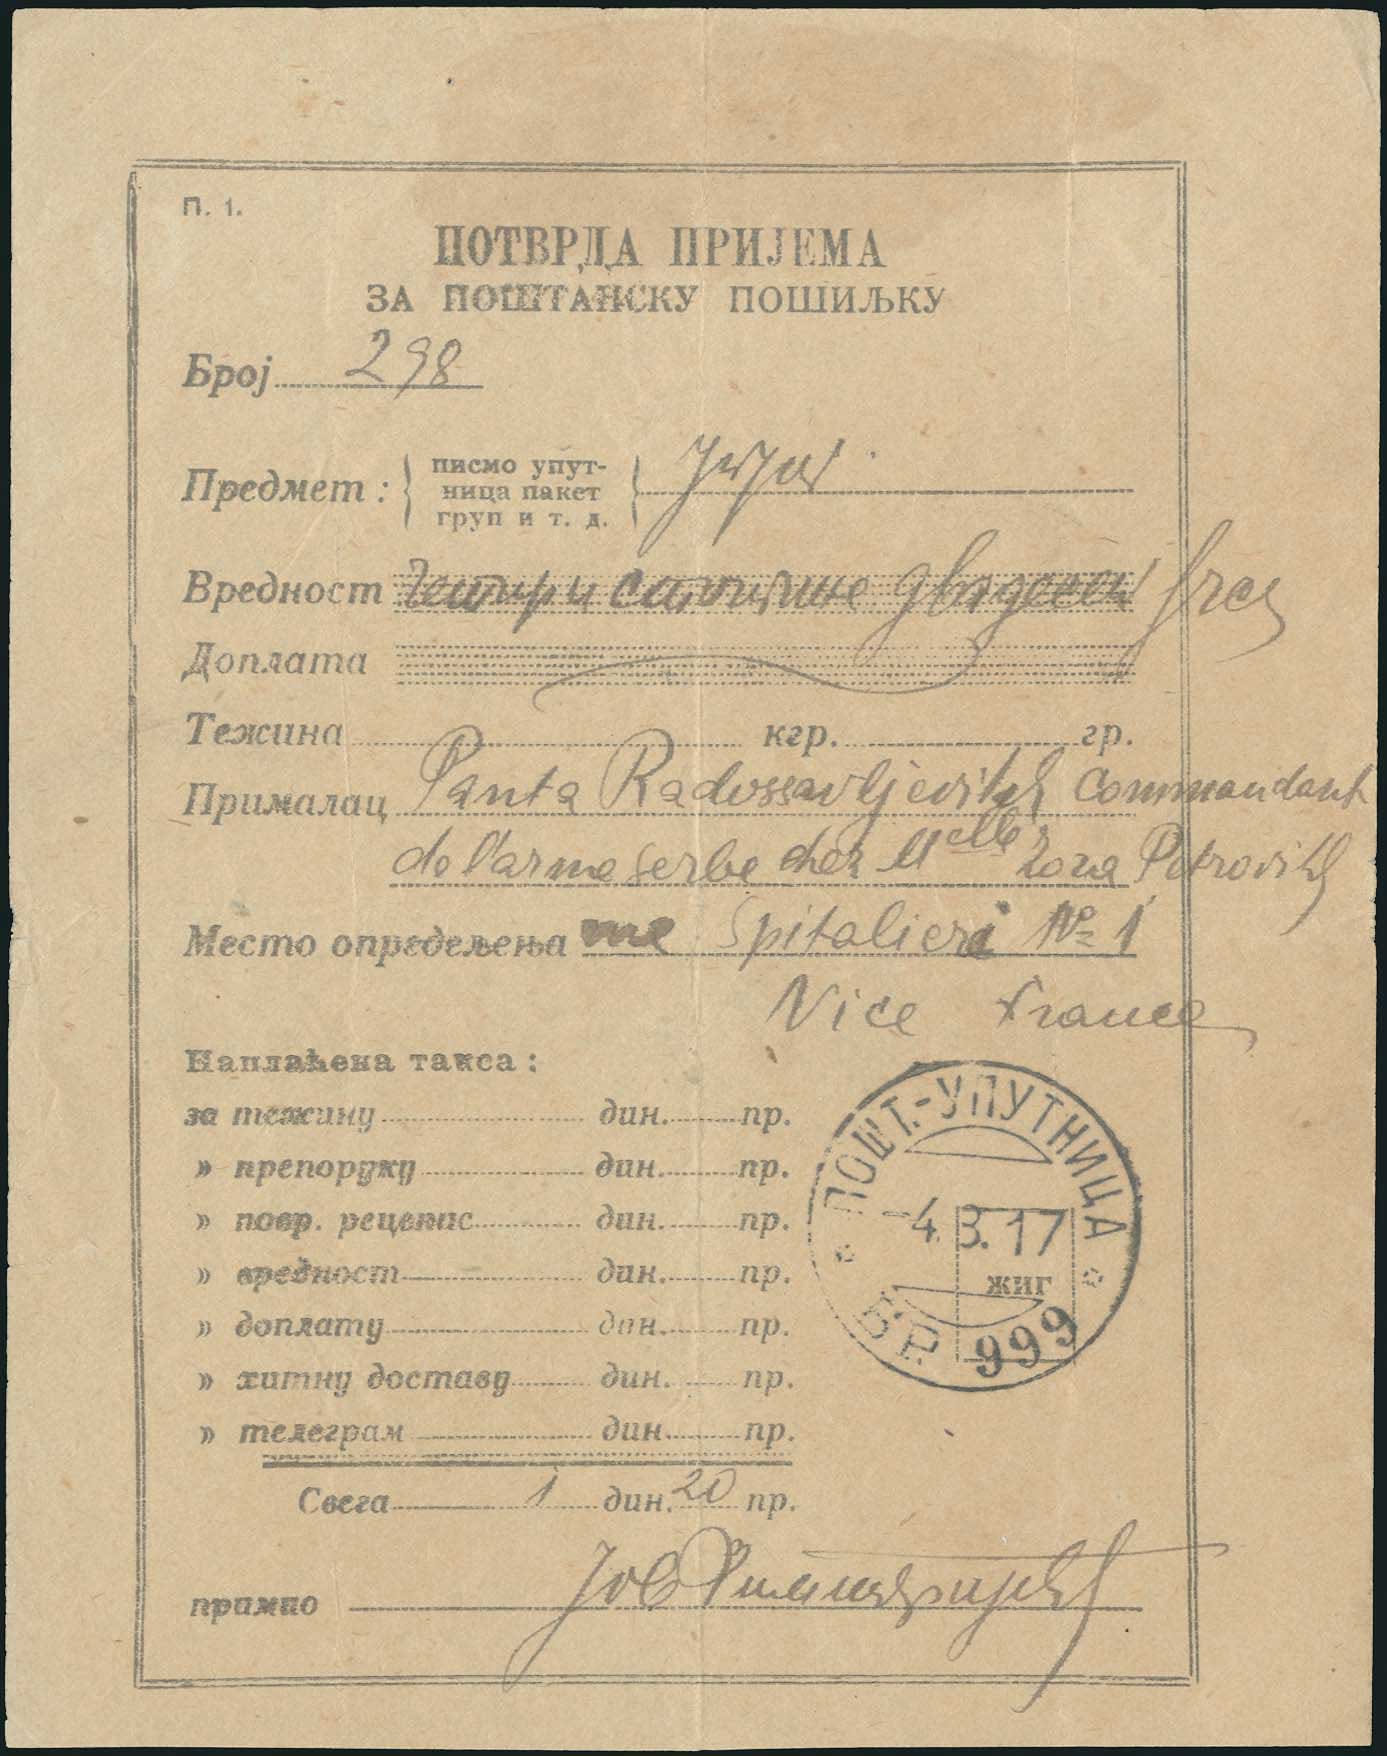 П. 1.
ПОТВРДА ПРИЈЕМА
ЗА ПОШТАНСКУ ПОШИЉКУ
Број 298
Предмет : { писмо упут-
ница пакет
груп и т. д. {
Вредност четири стотине двадесет frcs
Доплата
Тежина кгр. гр.
Прималац Panta Radossavljevitch Commandant
de l'arme serbe chez Melle Petrovitch
Место опредељења Spitalieri № 1
Nice France
Наплаћена такса :
за тежину дин. пр.
» препоруку дин. пр.
» повр. рецепис дин. пр.
» вредност дин. пр.
» доплату дин. пр.
» хитну доставу дин. пр.
» телеграм дин. пр.
Свега 1 дин. 20 пр.
ПОШТ.-УПУТНИЦА
-4. 3. 17
жиг
БР. 999
примио